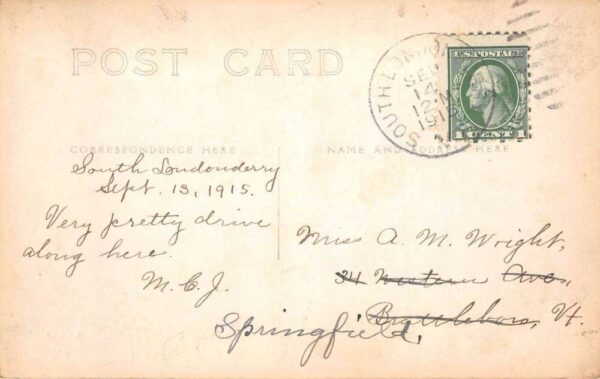 POST CARD
SOUTH LONDON
SEP
14
12 M
1915
U.S. POSTAGE
1 CENT 1
CORRESPONDENCE HERE
NAME AND ADDRESS HERE
South Londonderry
Sept. 13, 1915.
Very pretty drive
along here.
M.C.J.
Miss A. M. Wright,
34 Western Ave.,
Brattleboro, Vt.
Springfield,